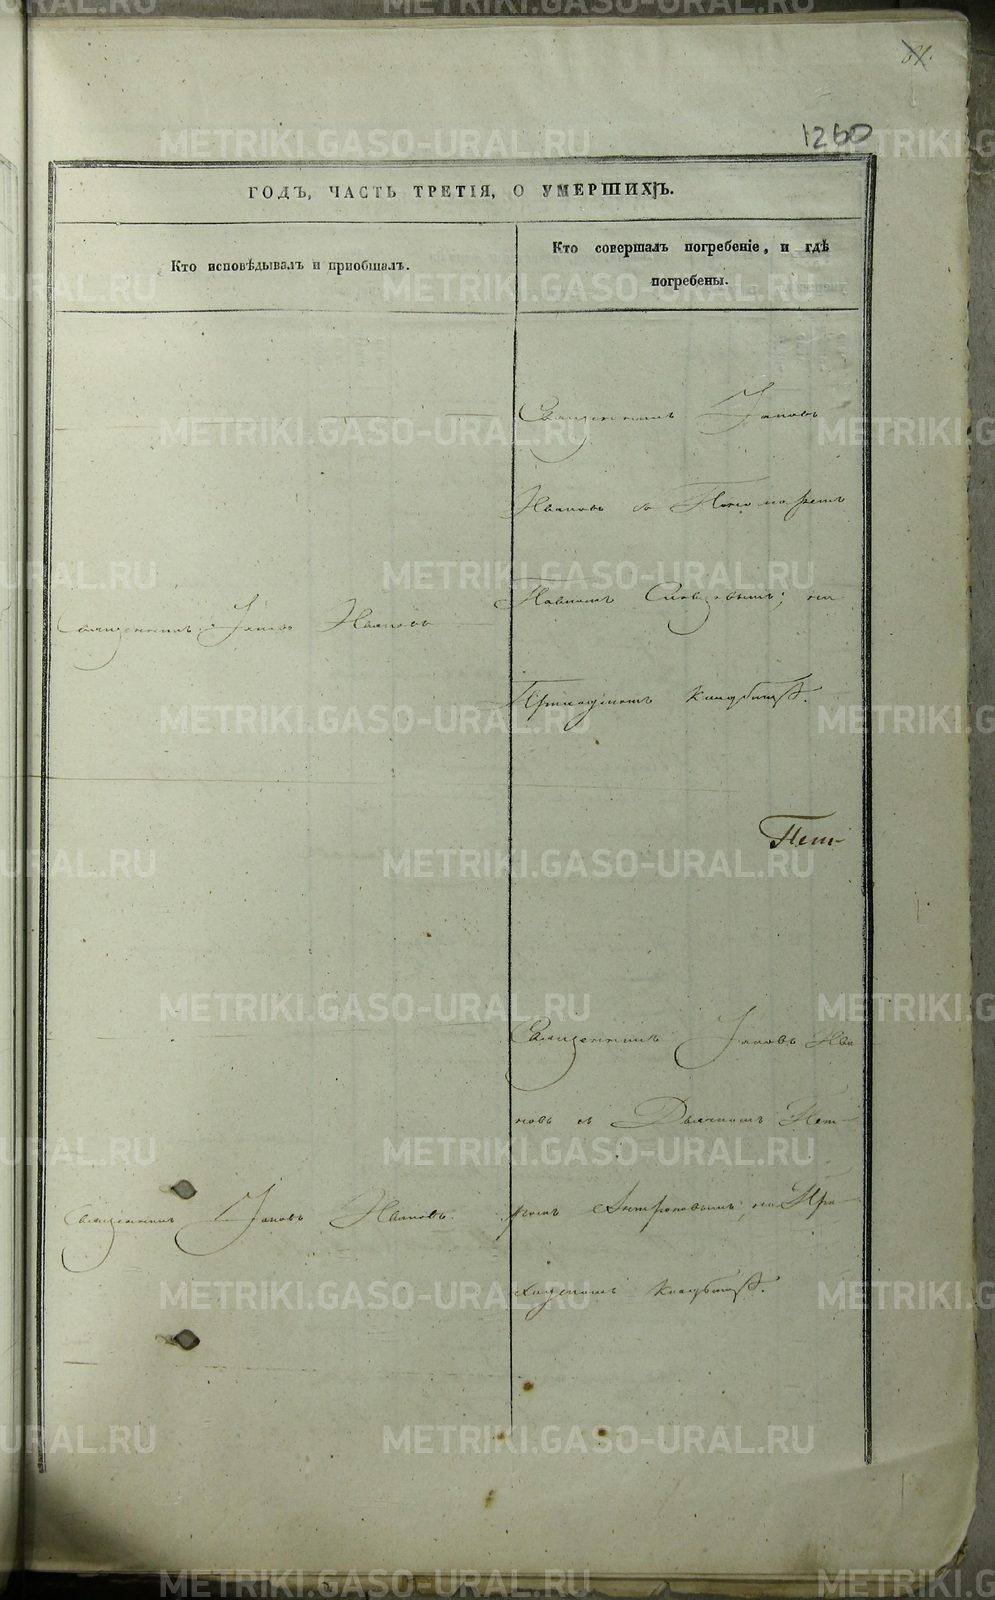 1260
ГОДЪ, ЧАСТЬ ТРЕТІЯ, О УМЕРШИХЪ.
Кто исповѣдывалъ и приобщалъ.
Кто совершалъ погребеніе, и гдѣ
погребены.
Священникъ Іаковъ
Ивановъ съ Пономаремъ
Павломъ на
Священникъ Іаковъ Ивановъ
Приходскомъ кладбищѣ.
Священникъ Іаковъ Ива
новъ съ Дьячкомъ Пет
ромъ Антроповымъ, на При
Священникъ Іаковъ Ивановъ.
ходскомъ кладбищѣ.
METRIKI.GASO-URAL.RU